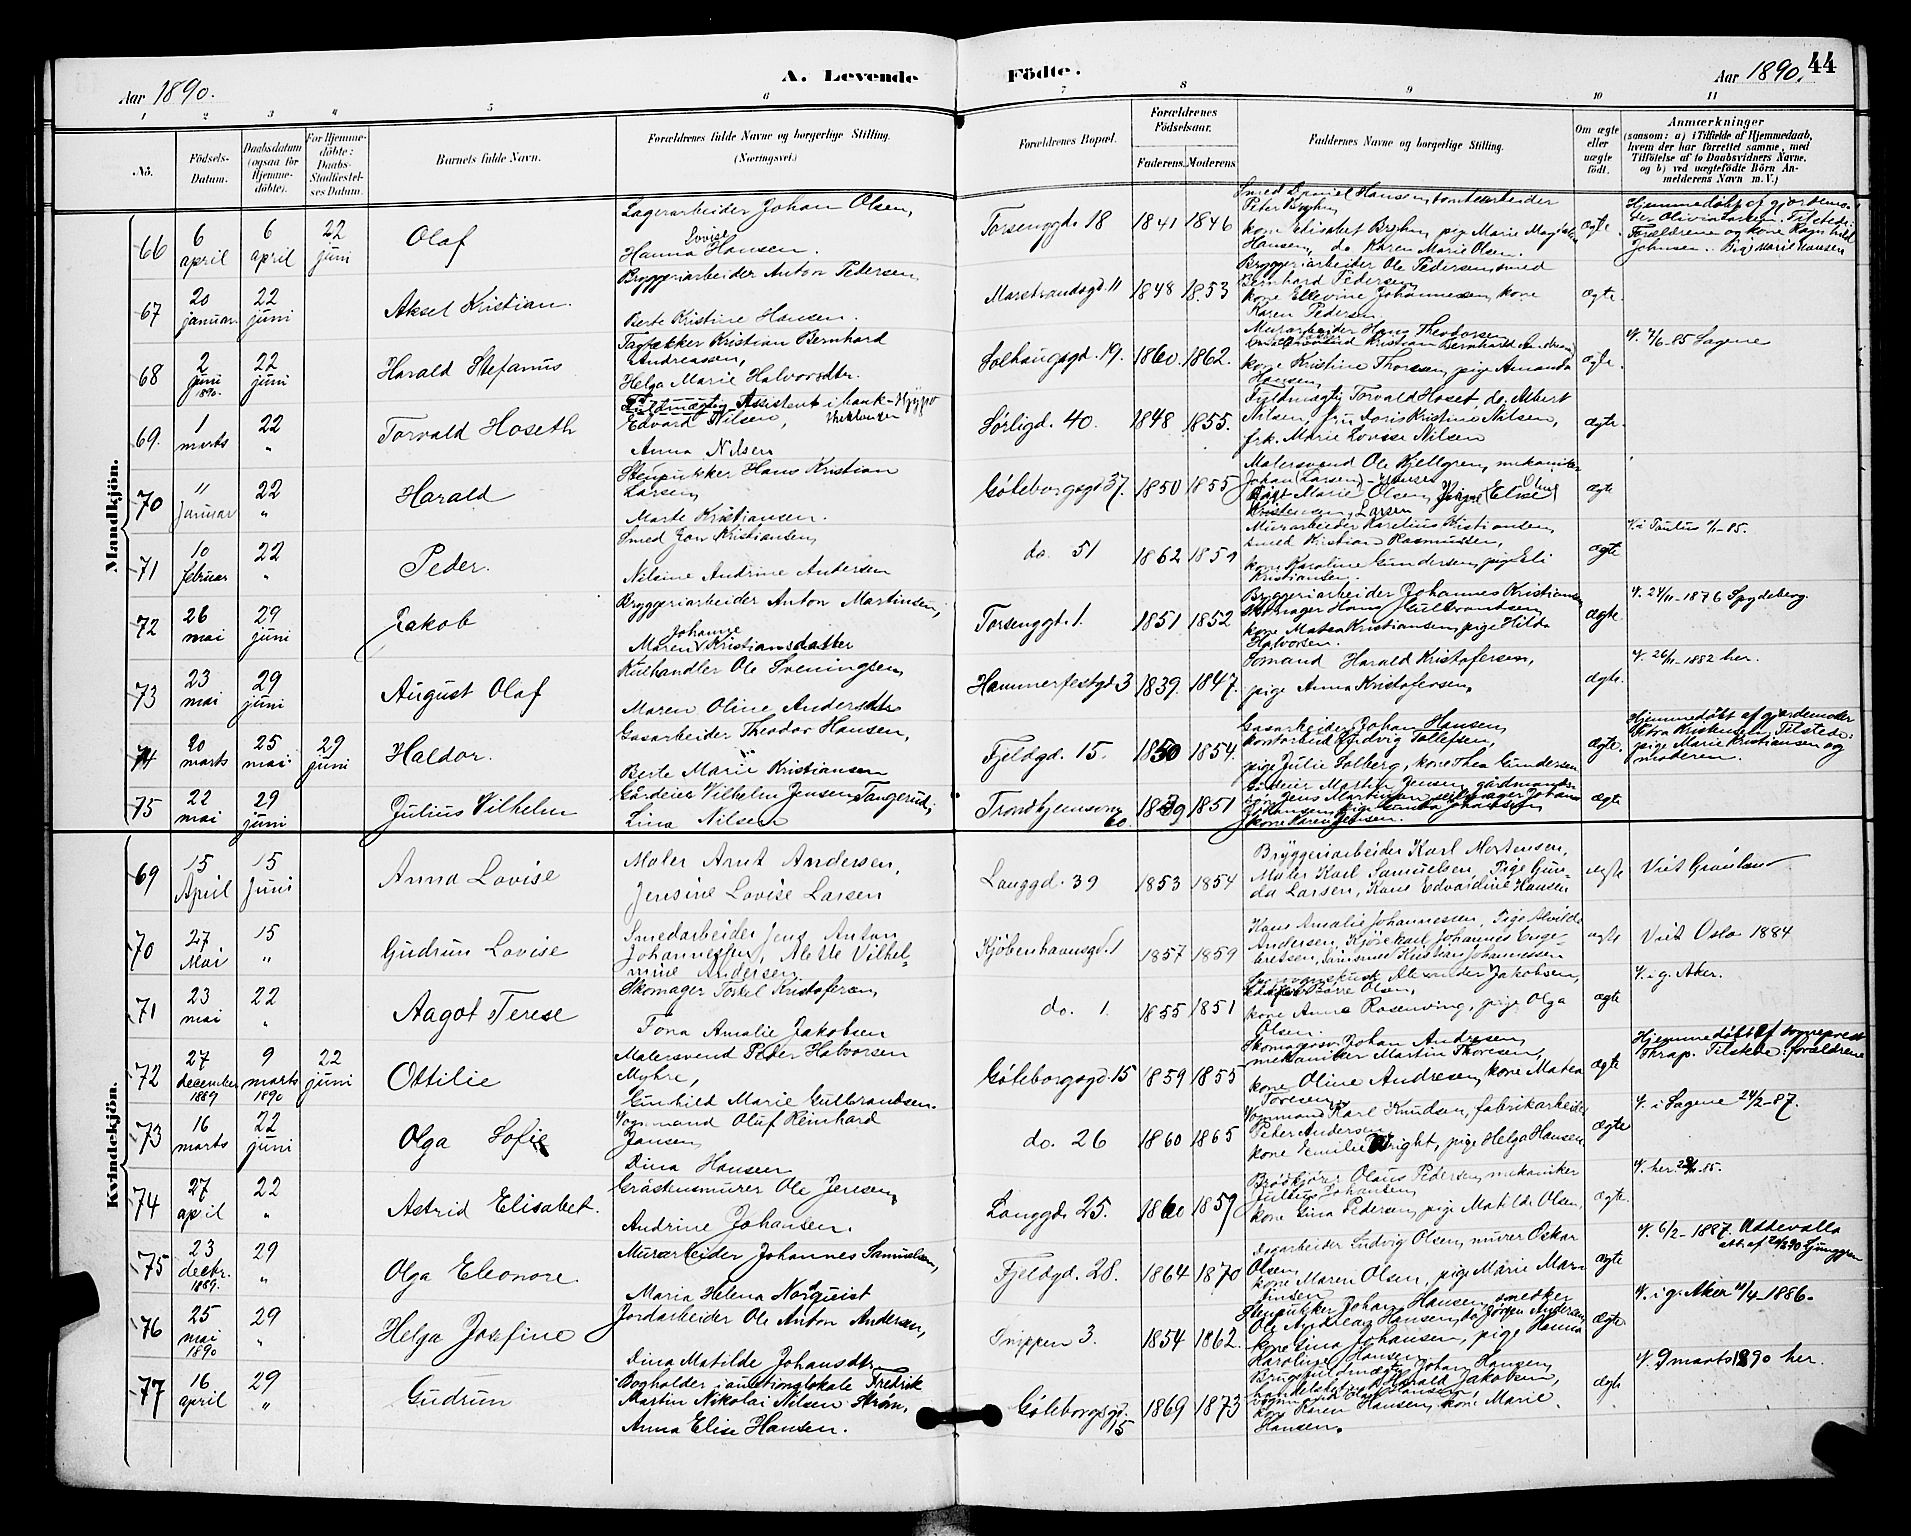 44
A. Levende Födte.
Aar 1890.
Aar 1890.
1 2 3 4 5 6 7 8 9 10 11
No.
Födsels-Datum.
Daabsdatum (ogsaa for Hjemme-döbte).
For Hjemme-döbte: Daabs-Stadfæstel-ses Datum.
Barnets fulde Navn.
Forældrenes fulde Navne og borgerlige Stilling. (Næringsvei.)
Forældrenes Bopæl.
Forældrenes Födselsaar.
Faderens. Moderens.
Faddernes Navne og borgerlige Stilling.
Om ægte eller uægte födt.
Anmærkninger
(saasom: a) i Tilfælde af Hjemmedaab, hvem der har forrettet samme, med Tilföielse af to Daabsvidners Navne, og b) ved uægtefödte Börn An-melderens Navn m. V.)
Mandkjön.
66 6 april 6 april 22 juni Olaf
Lagerarbeider Johan Olsen,
Hanna Lovise Hansen.
Torsenggd. 18 1841 1846
Smed Daniel Hansen, tomtearbeider
Peter Bryhn,
kone Elisabet Bryhn, pige Marie Magdalena
Hansen, do Karen Marie Olsen.
ægte
Hjemmedøbt af gjordemo-
der Olivia Larsen. Tilstede:
Forældrene og kone Ragnhild
Johnsen. Pige Marie Hansen
67 20 januar 22 juni Aksel Kristian.
Bryggeriarbeider Anton Pedersen,
Berte Kristine Hansen.
Marstrandsgd. 11 1848 1853
Bryggeriarbeider Ole Pedersen, smed
Bernhard Pedersen,
kone Ellevine Johannesen, kone
Karen Pedersen.
ægte.
68 2 juni 1890. 22 juni Harald Stefanus
Tagtækker Kristian Bernhard
Andreassen,
Helga Marie Halvorsdtr.
Solhaugsgd. 19. 1860. 1862.
Murarbeider Hans Theodorsen
kone Kristine Thorsen, pige Amanda
Hansen,
ægte.
V. 7/6-85 Sagene
69. 1 marts 22 " Torvald Hoseth
Assistent i bank-Hypo
Edvard Nilsen,
Anna Nilsen
Sørligd. 40. 1848 1855.
Fuldmægtig Torvald Hoset, do. Albert
Nilsen, fru Doris Kristine Nilsen,
frk. Marie Lovise Nilsen
ægte.
70 11 Januar 22 " Harald
Stenpukker Hans Kristian
Larsen,
Marte Kristiansen.
Göteborgsgd 37. 1850 1855
Malersvend Ole Kjellgren, mekaniker
Johan Larsen
Marie Olsen, Elise
Kristensen, Larsen
ægte
71 10 februar 22 " Peder.
Smed Jon Kristiansen,
Nilsine Andrine Andersen
do. 51 1862 1851
Murarbeider Karelius Kristiansen,
smed Kristian Rasmussen,
kone Karoline Gundersen, pige Eli
Kristiansen.
ægte
V. i Paulus 11/1-85.
72 26 mai 29 juni Jakob
Bryggeriarbeider Anton Martinsen,
Maren Johanne Kristiansdatter
Torsenggt. 1. 1851 1852
Bryggeriarbeider Johannes Kristiansen
Skomager Hans Gulbrandsen,
kone Matea Kristiansen, pige Hilda
Halvorsen.
ægte
V. 24/11-1876 Spydeberg.
73 23 mai 29 juni August Olaf
Kulhandler Ole Sveningsen
Maren Oline Andersdtr.
Hammerfestgd 3 1839. 1847.
Sømand Harald Kristofersen,
pige Anna Kristofersen,
ægte.
V. 26/11-1882 her.
74 20 marts 25 mai 29 juni Haldor.
Gasarbeider Theodor Hansen,
Berte Marie Kristiansen
Fjeldgd. 15. 1850 1854.
Gasarbeider Johan Hansen,
kontorbud Ludvig Tollefsen,
pige Julie Solberg, kone Thea Gundersen
ægte.
Hjemmedøbt af gjordemoder
Petra Kristensen. Tilstede:
pige Marie Kristiansen og
moderen.
75 22 mai 29 juni Julius Vilhelm
Gårdeier Vilhelm Jensen Tangerud,
Lina Nilsen
Trondhjemsvng 60. 1839 1851
Gårdeier Martin Jensen,
Johansen, pige
kone Karen Jensen.
ægte
Kvindekjön.
69 15 April 15 Juni Anna Lovise
Maler Arnt Andersen,
Jensine Lovise Larsen
Langgd. 39 1853 1854
Bryggeriarbeider Karl Mortensen,
Maler Karl Samuelsen, Pige Gun-
da Larsen, Kone Edvardine Hansen
ægte
Viet Grønland
70 27 Mai 15 " Gudrun Lovise
Smedarbeider Jens Anton
Johannessen, Alette Vilhel-
mine Andersen.
Kjöbenhavnsgd. 1 1857 1859
Kone Amalie Johannessen, Pige Alvilde
Andersen, Kjørekarl Johannes Enge-
bretsen, Kristian Johannessen
ægte
Viet Oslo 1884
71 23 mai 22 " Aagot Terese
Skomager Torkel Kristofersen,
Tona Amalie Jakobsen
do. 1. 1855 1851
Alexander Jakobsen,
Olsen,
kone Anna Rosenving, pige Olga
Olsen.
ægte
V. i g. Aker.
72 27 december 1889 9 marts 1890 22 juni Ottilie
Malersvend Peder Halvorsen
Myhre,
Gunhild Marie Gulbrandsen.
Göteborgsgd. 15 1859 1855
Skomagersv. Johan Andresen,
mekaniker Martin Thoresen,
kone Oline Andresen, kone Matea
Toresen,
ægte
Hjemmedøbt af sogneprest
Thrap. Tilstede: forældrene
73 16 marts 22 juni Olga Sofie
Vognmand Oluf Reinhard
Jansen,
Dina Hansen
do. 26 1860 1865
Vognmand Karl Knudsen, fabrikarbeider
Peter Andersen,
kone Emilie Wright, pige Helga Hansen
ægte
V. i Sagene 24/2-87.
74 27 april 22 " Astrid Elisabet.
Gråstensmurer Ole Jensen,
Andrine Johansen.
Langgd. 25. 1860 1859
Brødkjører Olaus Pedersen, mekaniker
Julius Johansen,
kone Gina Pedersen, pige Matilde Olsen,
ægte.
75 23 decbr. 1889. 29 " Olga Eleonore
Murarbeider Johannes Samuelsen,
Maria Helena Norquist
Fjeldgd. 28. 1864 1870
Dagarbeider Ludvig Olsen, murer Oskar
Olsen,
kone Maren Olsen, pige Marie Mar-
tinsen
ægte
V. 6/2-1887. Uddevalla
76 25 mai 1890 29 " Helga Josefine
Jordarbeider Ole Anton Andersen,
Dina Matilde Johansdtr.
Snippen 3. 1854 1862.
Stenpukker Johan Hansen, snedker
Ole Andreas Hansen, do. Jørgen Andersen,
kone Lina Johansen, pige Hanna
Karoline Hansen.
ægte.
V. i g. Aker 11/4-1886.
77 16 april 29 " Gudrun
Bogholder i auctionslokale Fredrik
Martin Nikolai Nilsen Strøm,
Anna Elise Hansen.
Göteborgsgd. 15 1869 1873
Brugsfuldmægtig Johan Hansen,
Harald Jakobsen,
kone Karen Hansen, kone Marie
Hansen.
ægte
V. 9 marts 1890 her.